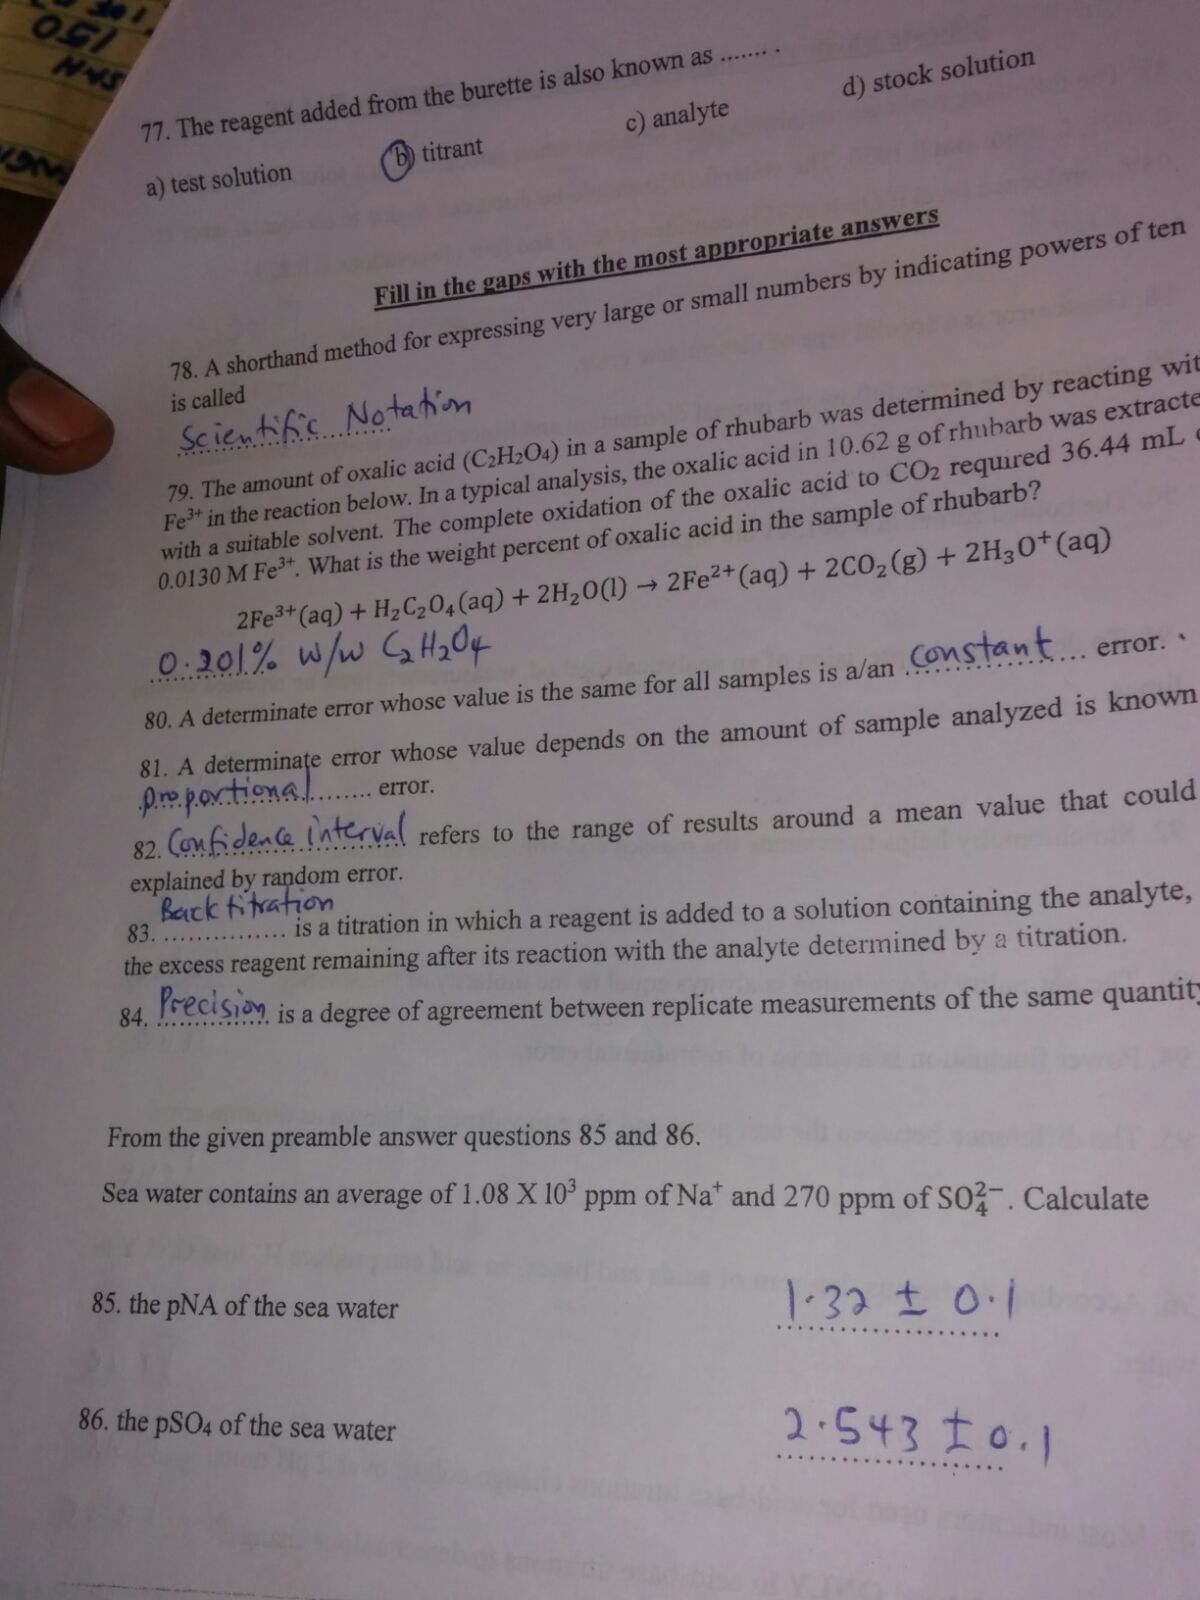 150
77. The reagent added from the burette is also known as ....... .
a) test solution b) titrant c) analyte d) stock solution
Fill in the gaps with the most appropriate answers
78. A shorthand method for expressing very large or small numbers by indicating powers of ten
is called
Scientific Notation
79. The amount of oxalic acid (C₂H₂O₄) in a sample of rhubarb was determined by reacting wit
Fe³⁺ in the reaction below. In a typical analysis, the oxalic acid in 10.62 g of rhubarb was extracte
with a suitable solvent. The complete oxidation of the oxalic acid to CO₂ required 36.44 mL
0.0130 M Fe³⁺. What is the weight percent of oxalic acid in the sample of rhubarb?
2Fe³⁺(aq) + H₂C₂O₄(aq) + 2H₂O(l) → 2Fe²⁺(aq) + 2CO₂(g) + 2H₃O⁺(aq)
0.201% w/w C₂H₂O₄
80. A determinate error whose value is the same for all samples is a/an constant error.
81. A determinate error whose value depends on the amount of sample analyzed is known
proportional error.
82. Confidence interval refers to the range of results around a mean value that could
explained by random error.
Back titration
83. ............... is a titration in which a reagent is added to a solution containing the analyte,
the excess reagent remaining after its reaction with the analyte determined by a titration.
84. Precision is a degree of agreement between replicate measurements of the same quantity
From the given preamble answer questions 85 and 86.
Sea water contains an average of 1.08 X 10³ ppm of Na⁺ and 270 ppm of SO₄²⁻. Calculate
85. the pNA of the sea water 1.32 ± 0.1
86. the pSO₄ of the sea water 2.543 ± 0.1